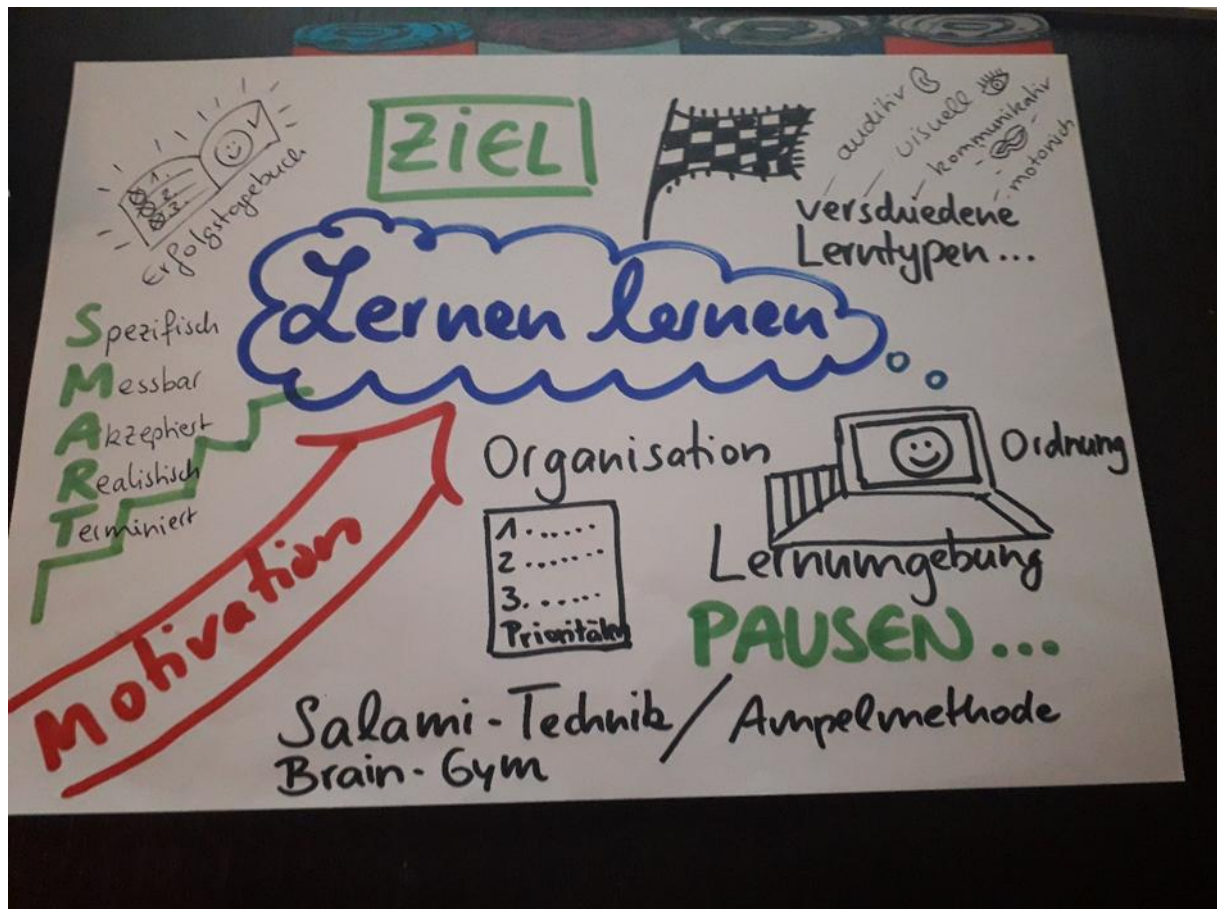 ZIEL
1.
2.
3.
Erfolgstagebuch
auditiv
visuell
kommunikativ
motorisch
verschiedene
Lerntypen...
Lernen lernen
Spezifisch
Messbar
Akzeptiert
Realistisch
Terminiert
Motivation
Organisation
1......
2......
3......
Prioritäten
Ordnung
Lernumgebung
PAUSEN...
Salami-Technik / Ampelmethode
Brain-Gym